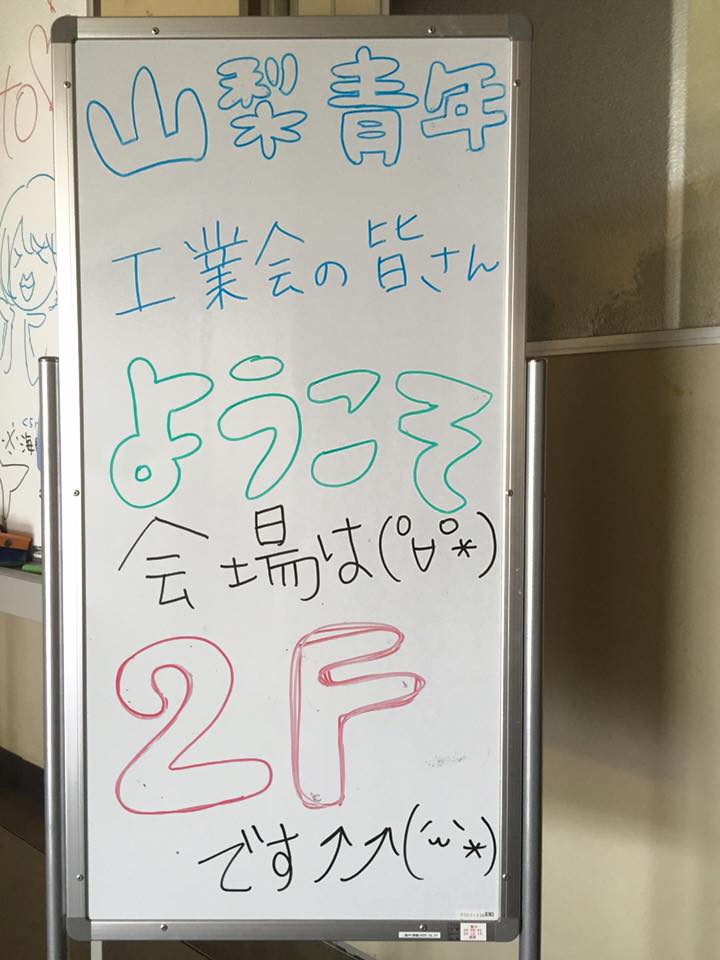 山梨青年
工業会の皆さん
ようこそ
会場は(°∀°*)
2F
です↗↗(´ω`*)